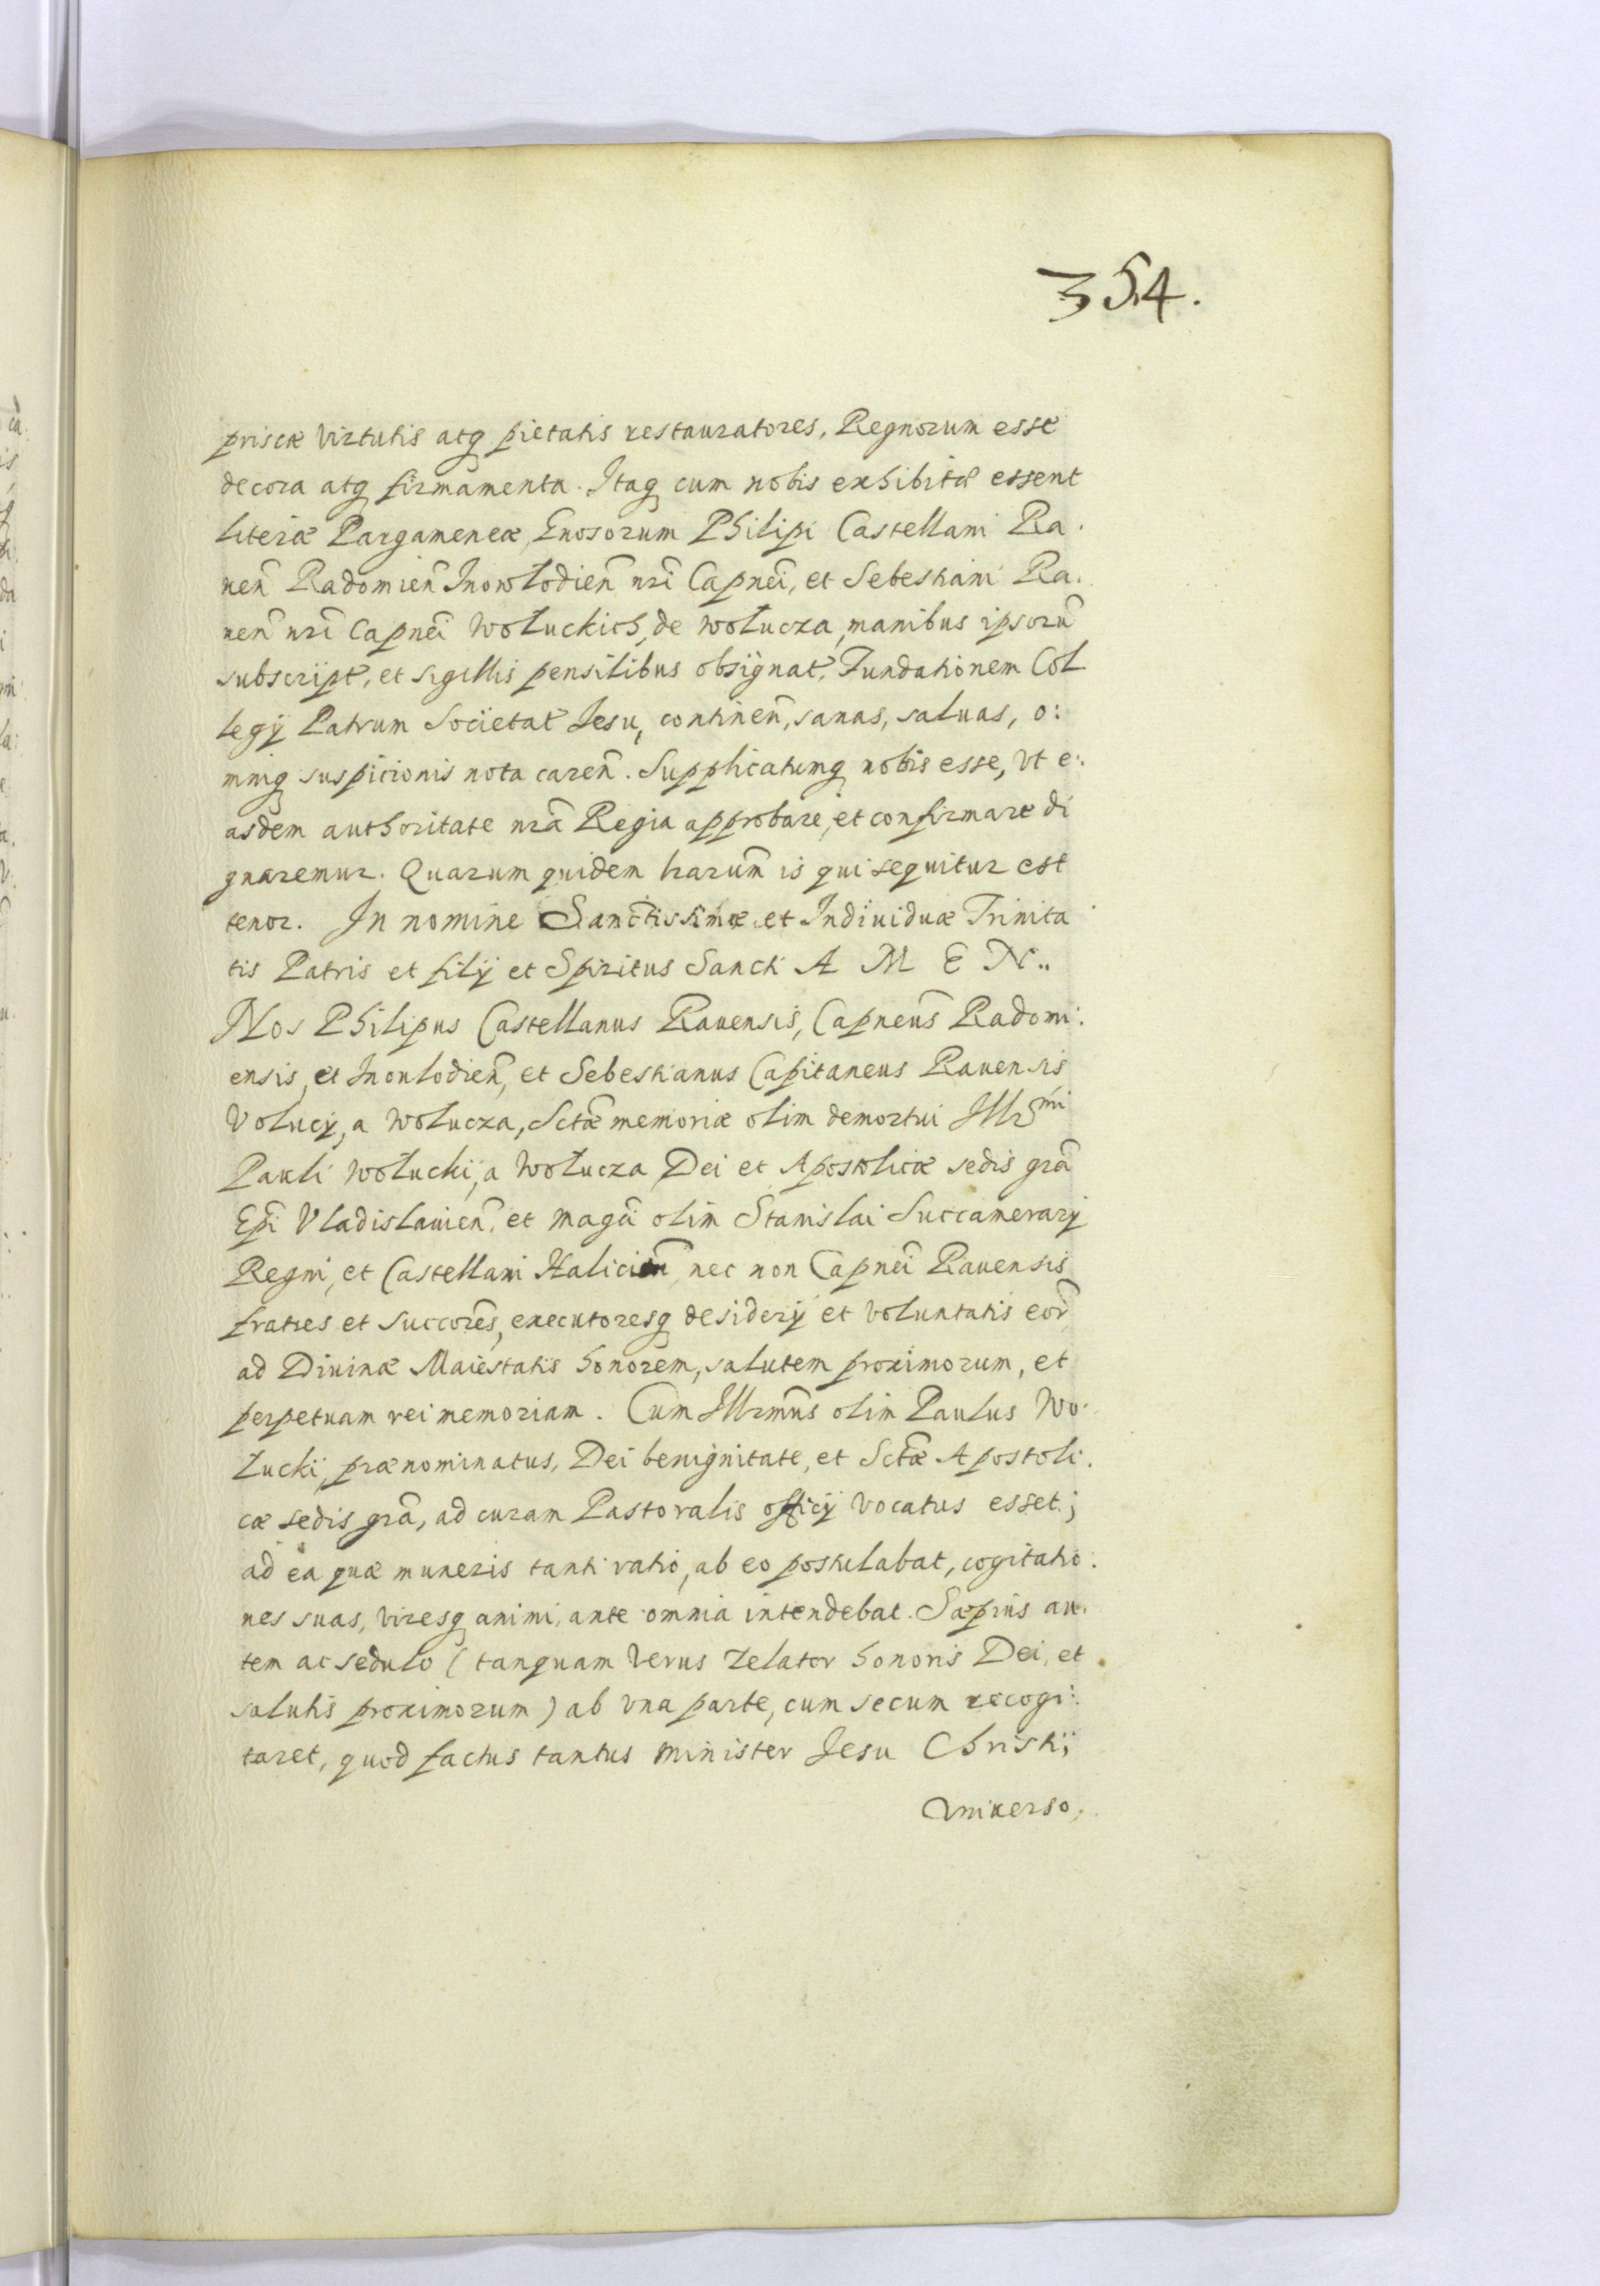 354.
priscæ Virtutis atq pietatis restauratores, Regnorum esse
decora atq firmamenta. Itaq cum nobis exhibitæ essent
literæ Pargameneæ, Gnosorum Philipi Castellani Ra.
uen̄ Radomien̄ Inowłodien̄ nrī Capneī, et Sebestiani Ra.
uen̄ nrī Capneī Wołuckich, de Wołucza, manibus ipsorū
subscript, et sigillis pensilibus obsignat, Fundationem Col
legÿ Patrum Societat Iesu, continen̄, sanas, saluas, o:
mniq suspicionis nota caren̄. Supplicatumq nobis esse, Vt e:
asdem authoritate nrā Regia approbare, et confirmare di
gnaremur. Quarum quidem harum̄ is qui sequitur est
tenor. In nomine Sanctissimæ et Indiuiduæ Trinita
tis Patris et filÿ et Spiritus Sancti A M E N..
Nos Philipus Castellanus Rauensis, Capneūs Radomi:
ensis, et Inoulodien̄, et Sebestianus Capitaneus Rauensis
Volucÿ, a Wołucza, Sctǣ memoriæ olim demortui Illr̄mi
Pauli Wołuckij, a Wołucza Dei et Apostolicæ sedis grā
Epī Vladislauien̄, et Magcī olim Stanislai Succamerarÿ
Regni, et Castellani Halicien̄ nec non Capneī Rauensis
fratres et Succorēs, executoresq desiderÿ et voluntatis eor̄
ad Diuinæ Maiestatis honorem, salutem proximorum, et
perpetuam rei memoriam. Cum Illrmūs olim Paulus Wo.
łucki, prænominatus, Dei benignitate, et Sctǣ Apostoli.
cæ sedis grā, ad curam Pastoralis officÿ Vocatus esset;
ad ea quæ muneris tanti ratio, ab eo postulabat, cogitatio.
nes suas, viresq animi, ante omnia intendebat. Sæpius au.
tem ac sedulo (tanquam Verus Zelator honoris Dei, et
salutis proximorum) ab vna parte, cum secum recogi:
taret, quod factus tantus Minister Iesu Christi;
Vniuerso.